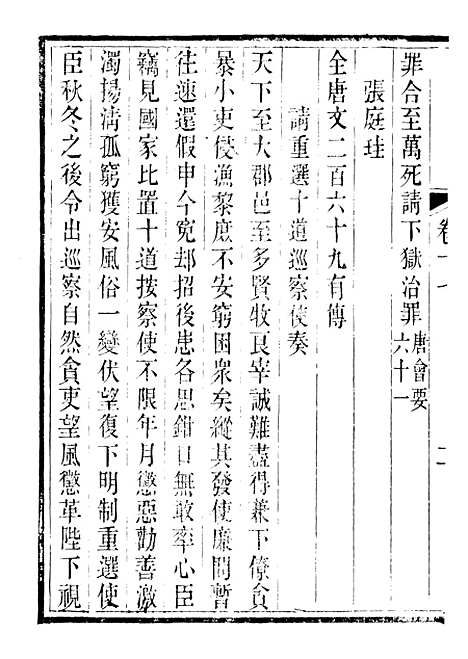 罪合至萬死請下獄治罪唐會要六十一
張庭珪
全唐文二百六十九有傳
請重選十道巡察使奏
天下至大郡邑至多賢牧良宰誠難盡得兼下僚貪
暴小吏侵漁黎庶不安窮困衆矣縱其發使廉問暫
往速還假申今冤却招後患各思鉗口無敢率心臣
竊見國家比置十道按察使不限年月懲惡勸善激
濁揚清孤窮獲安風俗一變伏望復下明制重選使
臣秋冬之後令出巡察自然貪吏望風懲革陛下視
卷十七
二